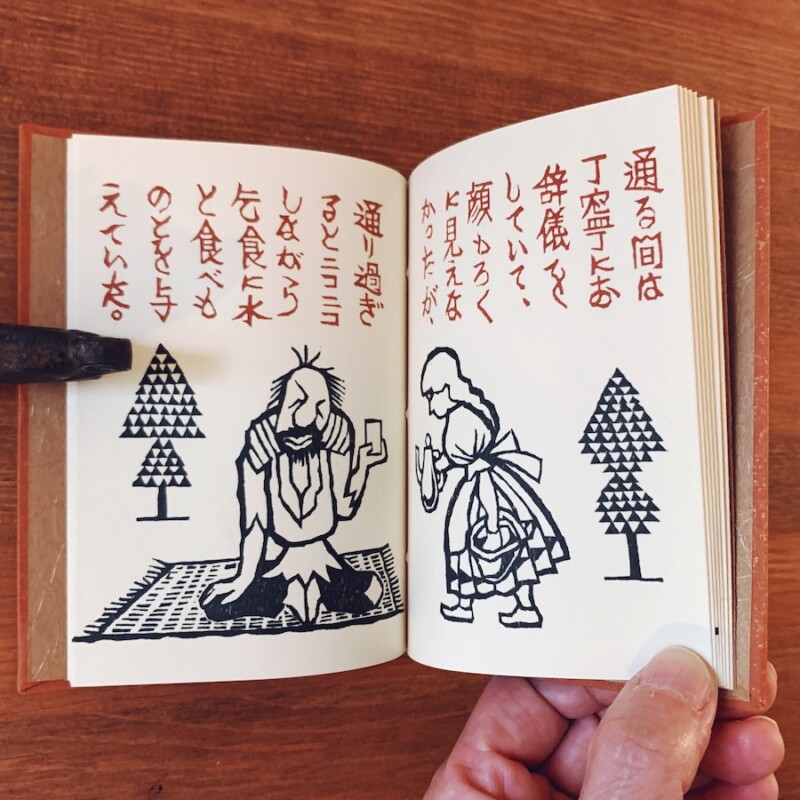 通る間は
丁寧にお
辞儀を
していて、
顔もろく
に見えな
かったが、
通り過ぎ
るとニコニコ
しながら
乞食に水
と食べも
のとを与
えていた。